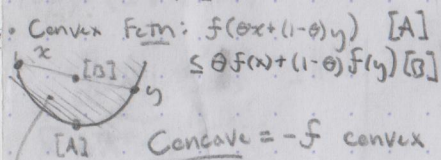 • Convex Fctn: f(θx+(1-θ)y) [A]
≤ θf(x)+(1-θ)f(y) [B]
x
[B]
y
[A]
Concave = -f convex